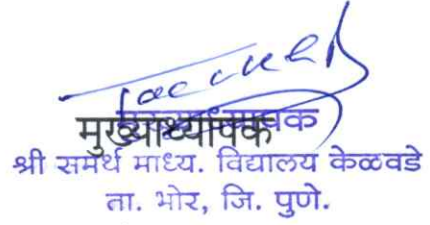 मुख्याध्यापक
मुख्याध्यापक
श्री समर्थ माध्य. विद्यालय केळवडे
ता. भोर, जि. पुणे.